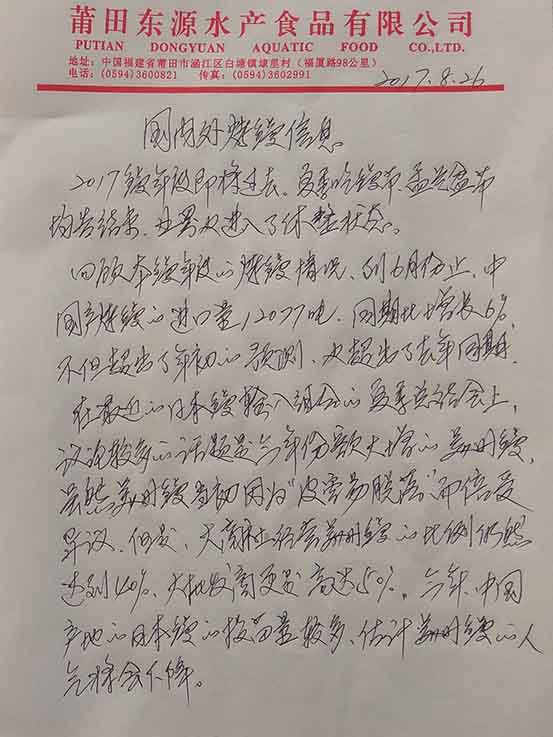 莆田东源水产食品有限公司
PUTIAN DONGYUAN AQUATIC FOOD CO.,LTD.
地址：中国福建省莆田市涵江区白塘镇埭里村（福厦路98公里）
电话：(0594)3600821 传真：(0594)3602991
2017.8.26
国内外烤鳗信息
2017鳗年度即将过去、夏季吃鳗节、盂兰盆节
均告结束、业界也进入了休整状态。
回顾本鳗年度的烤鳗情况、到6月份止、中
国产烤鳗的进口量12077吨、同期比增长6%
不但超出了年初的预测、也超出了去年同期。
在最近的日本鳗输入组合的夏季总结会上、
议论较多的话题是今年份额大增的美州鳗、
虽然美州鳗当初因为“皮容易脱落”而倍受
异议、但是、大商社经营美州鳗的比例仍然
达到40%、大批发商更是高达50%。今年、中国
产地的日本鳗的投苗量较多、估计美州鳗的人
气将会下降。